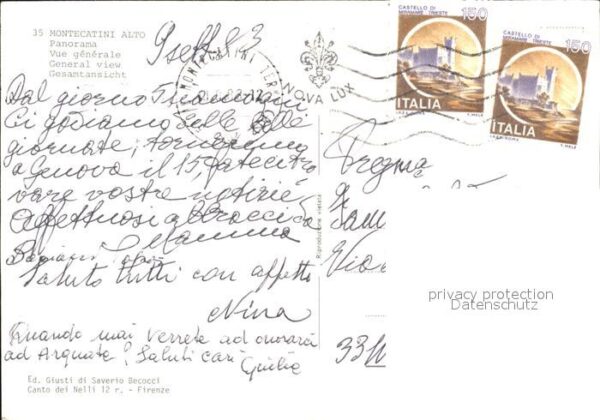 35 MONTECATINI ALTO
Panorama
Vue générale
General view
Gesamtansicht
9 sett 83
MONTECATINI TERME
NOVA LUX
CASTELLO DI MIRAMARE TRIESTE 150
ITALIA
I.P.Z.S. ROMA T. MELE
CASTELLO DI MIRAMARE TRIESTE 150
ITALIA
I.P.Z.S. ROMA T. MELE
Dal giorno
Ci godiamo belle
giornate, torneremo
a Genova il 15 fateci tro
vare vostre notizie
Affettuosi abbracci da
Mamma
Saluto tutti con affetto
Nina
Quando mai verrete ad onorarci
ad Arquata? Saluti cari
Giulia
Ed. Giusti di Saverio Becocci
Canto dei Nelli 12 r. - Firenze
Riproduzione vietata
Via
33
privacy protection
Datenschutz